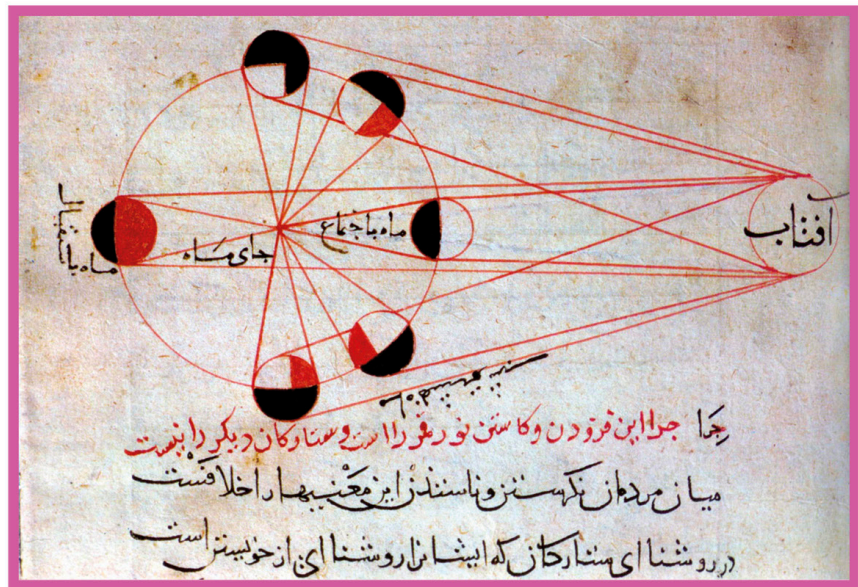 افتاب
ماه باجتماع
جای ماه
ماه باستقبال
چرا چرا این فزودن و کاستن نور قمر را است و ستارکان دیکر را نیست
میان مردمان نکرستن و دانستن این معنیها را خلافست
در روشنا ای ستارکان که ایشانرا روشنا ای از خویشتن است